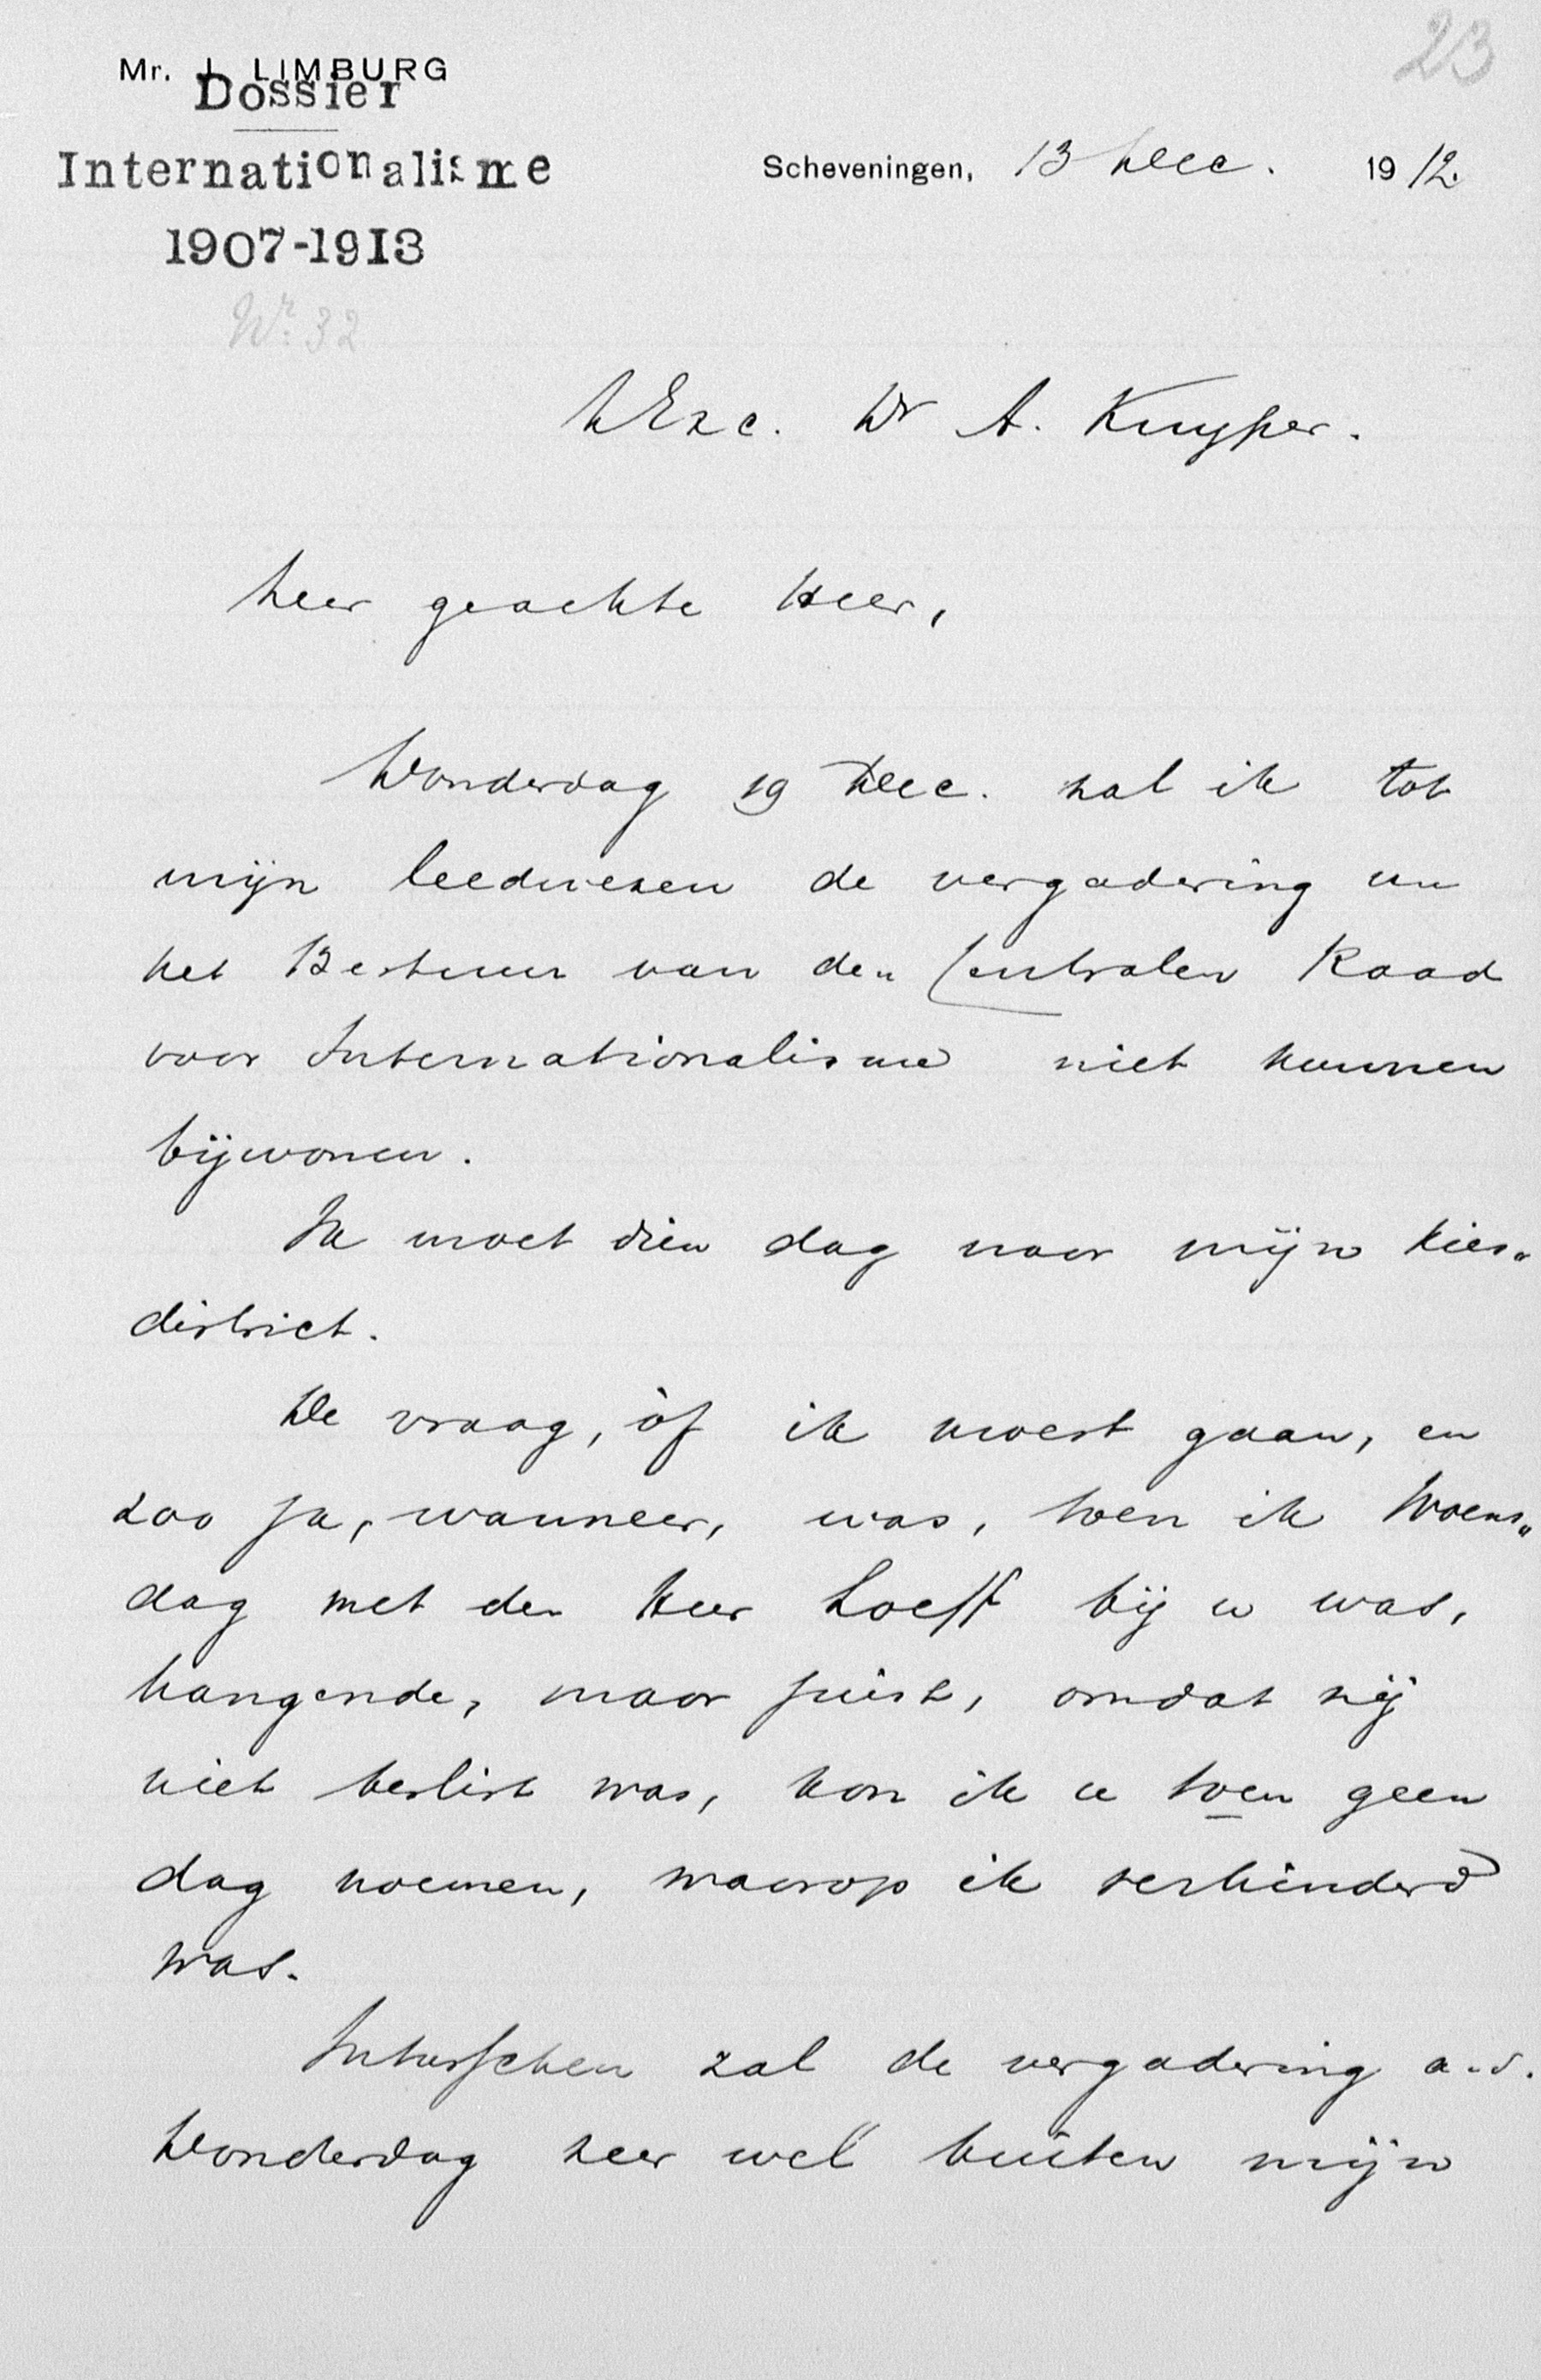 23
Mr. J. LIMBURG
Dossier
Internationalisme
Scheveningen, 13 Dec. 1912.
1907-1913
Nr. 32
ZExc. Dr A. Kuyper.
Zeer geachte Heer,
Donderdag 19 Dec. zal ik tot
mijn leedwezen de vergadering van
het Bestuur van den Centralen Raad
voor Internationalisme niet kunnen
bijwonen.
Ik moet dien dag naar mijn kies„
district.
De vraag, òf ik moest gaan, en
zoo ja, wanneer, was, toen ik Woens„
dag met den Heer Loeff bij u was,
hangende, maar juist, omdat zij
niet beslist was, kon ik u toen geen
dag noemen, waarop ik verhinderd
was.
Intusschen zal de vergadering a.s.
Donderdag zeer wel buiten mijn